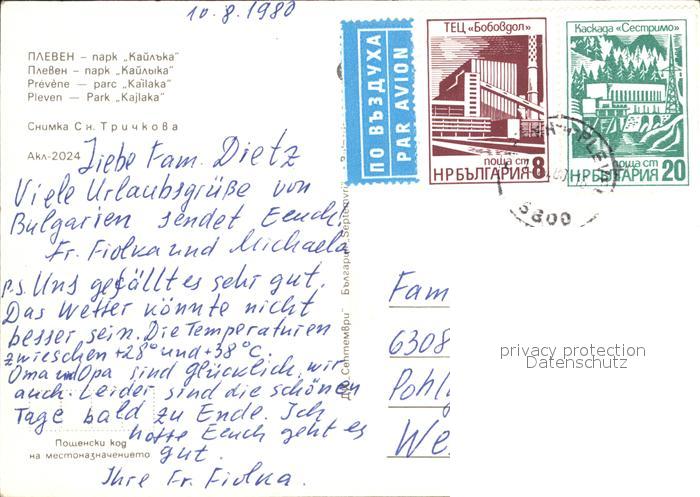 10.8.1980
ПЛЕВЕН – парк „Кайлъка“
Плевен – парк „Кайлыка“
Prévène — parc „Kaïlaka“
Pleven — Park „Kajlaka“
Снимка Сн. Тричкова
Акл-2024
Liebe Fam. Dietz
Viele Urlaubsgrüße von
Bulgarien sendet Eeuch
Fr. Fiolka und Michaela
P.S. Uns gefällt es sehr gut.
Das Wetter könnte nicht
besser sein. Die Temperaturen
zwieschen +28° und +38°C.
Oma und Opa sind glücklich, wir
auch. Leider sind die schönen
Tage bald zu Ende. Ich
hoffe Eeuch geht es
gut.
Ihre Fr. Fiolka.
Пощенски код
на местоназначението
ПО ВЪЗДУХА
PAR AVION
ТЕЦ „Бобовдол“
поща ст 8
НРБЪЛГАРИЯ
Каскада „Сестримо“
поща ст
НРБЪЛГАРИЯ 20
5800
Fam
6308
Pohl
We
privacy protection
Datenschutz